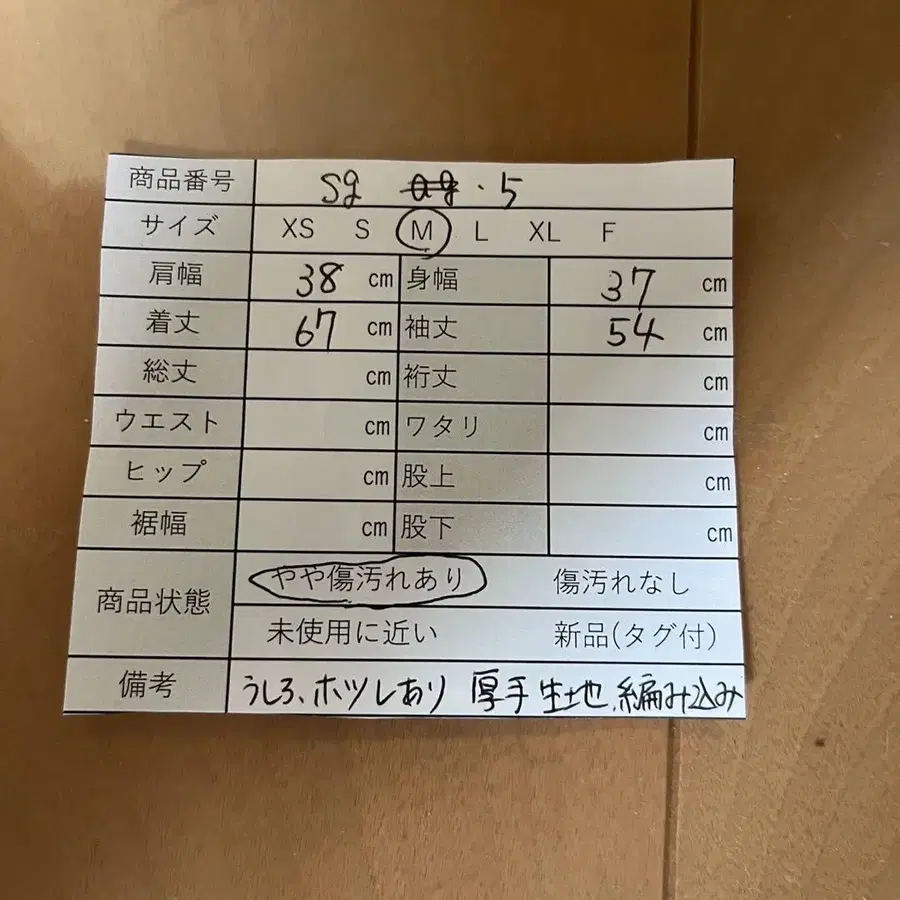 商品番号 Sg ・5
サイズ XS S M L XL F
肩幅 38 cm 身幅 37 cm
着丈 67 cm 袖丈 54 cm
総丈 cm 裄丈 cm
ウエスト cm ワタリ cm
ヒップ cm 股上 cm
裾幅 cm 股下 cm
商品状態 やや傷汚れあり 傷汚れなし
未使用に近い 新品(タグ付)
備考 うしろ、ホツレあり 厚手生地、編み込み